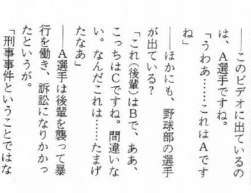 ――このビデオに出ているの
は、A選手ですね。
「うわあ……これはAです
ね」
――ほかにも、野球部の選手
が出ている？
「これ（後輩）はBで、ああ、
こっちはCですね。間違いな
い。なんだこれは……たまげ
たなあ」
――A選手は後輩を襲って暴
行を働き、訴訟になりかかっ
たというが。
「刑事事件ということではな